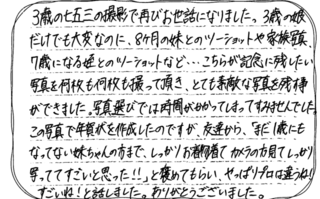 3歳の七五三の撮影で再びお世話になりました。3歳の娘
だけでも大変なのに、8ヶ月の妹とのツーショットや家族写真、
7歳になる姪とのツーショットなど…こちらが記念に残したい
写真を何枚も何枚も撮って頂き、とても素敵な写真を残す事
ができました。写真選びでは時間がかかってしまってすみませんでした。
この写真で年賀状を作成したのですが、友達から、「まだ1歳にも
なってない妹ちゃんの方まで、しっかりお着物着てカメラの方見てしっかり
写っててすごいと思った!!」と褒めてもらい、やっぱりプロは違うね!
すごいね!と話しました。ありがとうございました。